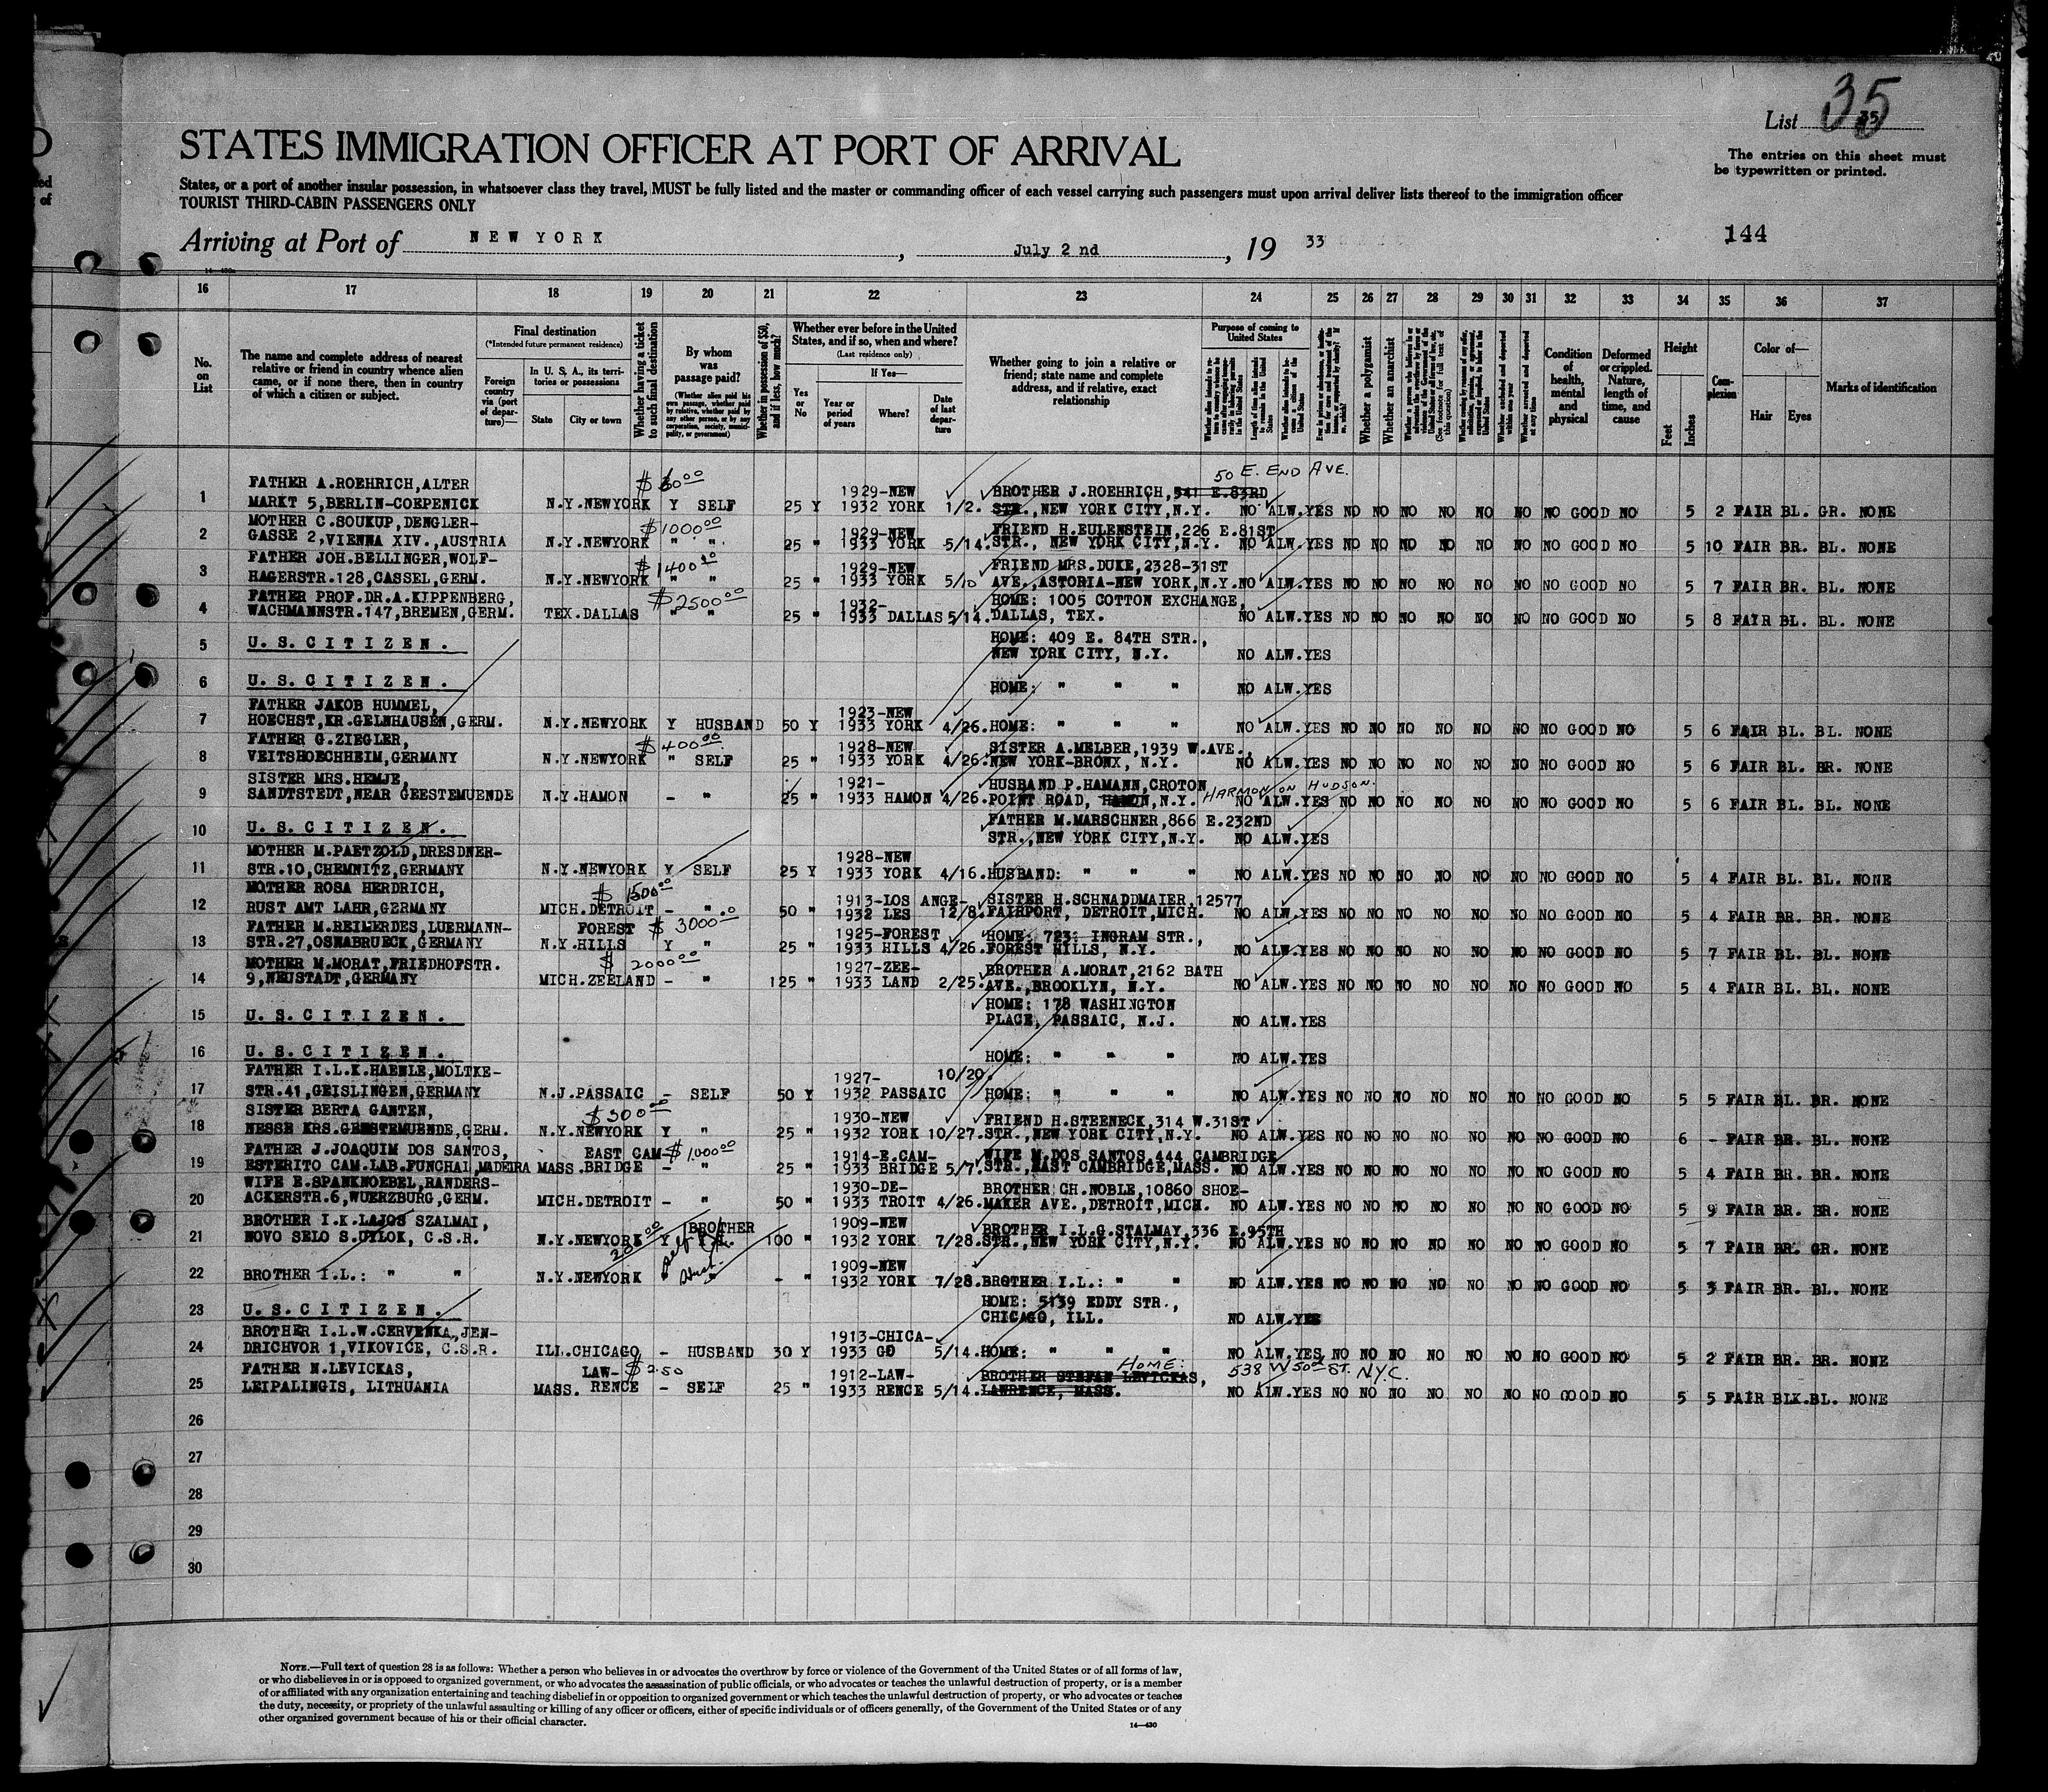 List 35
35
STATES IMMIGRATION OFFICER AT PORT OF ARRIVAL
The entries on this sheet must
be typewritten or printed.
States, or a port of another insular possession, in whatsoever class they travel, MUST be fully listed and the master or commanding officer of each vessel carrying such passengers must upon arrival deliver lists thereof to the immigration officer
TOURIST THIRD-CABIN PASSENGERS ONLY
Arriving at Port of NEW YORK, July 2 nd, 19 33
144
16 17 18 19 20 21 22 23 24 25 26 27 28 29 30 31 32 33 34 35 36 37
No. on List
The name and complete address of nearest relative or friend in country whence alien came, or if none there, then in country of which a citizen or subject.
Final destination
(*Intended future permanent residence)
Foreign country via (port of departure)—
In U. S. A., its territories or possessions
State City or town
Whether having a ticket to such final destination
By whom was passage paid?
(Whether alien paid his own passage, whether paid by relative, whether paid by any other person, or by any corporation, society, municipality, or government)
Whether in possession of $50, and if less, how much?
Whether ever before in the United States, and if so, when and where?
(Last residence only)
Yes or No
If Yes—
Year or period of years
Where?
Date of last departure
Whether going to join a relative or friend; state name and complete address, and if relative, exact relationship
Purpose of coming to United States
Whether a polygamist
Whether an anarchist
Condition of health, mental and physical
Deformed or crippled. Nature, length of time, and cause
Height
Feet Inches
Complexion
Color of—
Hair Eyes
Marks of identification
50 E. END AVE.
FATHER A.ROEHRICH,ALTER $60.00 1929-NEW BROTHER J.ROEHRICH,541 E.83RD
1 MARKT 5,BERLIN-COEPENICK N.Y.NEWYORK Y SELF 25 Y 1932 YORK 1/2. STR.,NEW YORK CITY,N.Y. NO ALW.YES NO NO NO NO NO NO GOOD NO 5 2 FAIR BL. GR. NONE
MOTHER C.SOUKUP, DENGLER- $1000.00 1929-NEW FRIEND H.EULENSTEIN,226 E.81ST
2 GASSE 2,VIENNA XIV.,AUSTRIA N.Y.NEWYORK " " 25 " 1933 YORK 5/14. STR., NEW YORK CITY,N.Y. NO ALW.YES NO NO NO NO NO NO GOOD NO 5 10 FAIR BR. BL. NONE
FATHER JOH.BELLINGER,WOLF- $1400 1929-NEW FRIEND MRS.DUKE,2328-31ST
3 HAGERSTR.128,CASSEL,GERM. N.Y.NEWYORK " " 25 " 1933 YORK 5/10 AVE.,ASTORIA-NEW YORK,N.Y. NO ALW.YES NO NO NO NO NO NO GOOD NO 5 7 FAIR BR. BL. NONE
FATHER PROF.DR.A.KIPPENBERG, $2500.00 1932- HOME: 1005 COTTON EXCHANGE,
4 WACHMANNSTR.147,BREMEN,GERM. TEX.DALLAS " 25 " 1933 DALLAS 5/14. DALLAS, TEX. NO ALW.YES NO NO NO NO NO NO GOOD NO 5 8 FAIR BL. BL. NONE
HOME: 409 E. 84TH STR.,
5 U.S.CITIZEN. NEW YORK CITY, N.Y. NO ALW.YES
6 U.S.CITIZEN. HOME: " " " NO ALW.YES
FATHER JAKOB HUMMEL, 1923-NEW
7 HOECHST,KR.GELNHAUSEN,GERM. N.Y.NEWYORK Y HUSBAND 50 Y 1933 YORK 4/26. HOME: " " " NO ALW.YES NO NO NO NO NO NO GOOD NO 5 6 FAIR BL. BL. NONE
FATHER G.ZIEGLER, $400.00 1928-NEW SISTER A.MELBER,1939 W.AVE.,
8 VEITSHOECHHEIM,GERMANY N.Y.NEWYORK " SELF 25 " 1933 YORK 4/26. NEW YORK-BRONX, N.Y. NO ALW.YES NO NO NO NO NO NO GOOD NO 5 6 FAIR BL. BR. NONE
SISTER MRS.HEMJE, 1921- HUSBAND P.HAMANN,CROTON HARMON ON HUDSON.
9 SANDTSTEDT,NEAR GEESTEMUENDE N.Y.HAMON - " 25 " 1933 HAMON 4/26. POINT ROAD, HAMON,N.Y. NO ALW.YES NO NO NO NO NO NO GOOD NO 5 6 FAIR BL. BL. NONE
FATHER M.MARSCHNER,866 E.232ND
10 U.S.CITIZEN. STR.,NEW YORK CITY,N.Y. NO ALW.YES
MOTHER M.PAETZOLD,DRESDNER- 1928-NEW
11 STR.10,CHEMNITZ,GERMANY N.Y.NEWYORK Y SELF 25 Y 1933 YORK 4/16. HUSBAND: " " " NO ALW.YES NO NO NO NO NO NO GOOD NO 5 4 FAIR BL. BL. NONE
MOTHER ROSA HERDRICH, $1500.00 1913-LOS ANGE- SISTER H.SCHNADDMAIER,12577
12 RUST AMT LAHR,GERMANY MICH.DETROIT - " 50 " 1932 LES 12/8. FAIRPORT, DETROIT,MICH. NO ALW.YES NO NO NO NO NO NO GOOD NO 5 4 FAIR BR. BR. NONE
FATHER M.REILERDES,LUERMANN- FOREST $3000.00 1925-FOREST HOME: 723: INGRAM STR.,
13 STR.27,OSNABRUECK,GERMANY N.Y.HILLS Y " 25 " 1933 HILLS 4/26. FOREST HILLS, N.Y. NO ALW.YES NO NO NO NO NO NO GOOD NO 5 7 FAIR BL. BL. NONE
MOTHER M.MORAT,FRIEDHOFSTR. $2000.00 1927-ZEE- BROTHER A.MORAT,2162 BATH
14 9,NEUSTADT,GERMANY MICH.ZEELAND - " 125 " 1933 LAND 2/25. AVE.,BROOKLYN, N.Y. NO ALW.YES NO NO NO NO NO NO GOOD NO 5 4 FAIR BL. BL. NONE
HOME: 178 WASHINGTON
15 U.S.CITIZEN. PLACE, PASSAIC, N.J. NO ALW.YES
16 U.S.CITIZEN. HOME: " " " NO ALW.YES
FATHER I.L.K.HAENLE,MOLTKE- 1927- 10/20.
17 STR.41,GEISLINGEN,GERMANY N.J.PASSAIC - SELF 50 Y 1932 PASSAIC HOME: " " " NO ALW.YES NO NO NO NO NO NO GOOD NO 5 5 FAIR BL. BR. NONE
SISTER BERTA GANTEN, $300.00 1930-NEW FRIEND H.STEENECK,314 W.31ST
18 NESSE KRS.GEESTEMUENDE,GERM. N.Y.NEWYORK Y " 25 " 1932 YORK 10/27. STR.,NEW YORK CITY,N.Y. NO ALW.YES NO NO NO NO NO NO GOOD NO 6 - FAIR BR. BL. NONE
FATHER J.JOAQUIM DOS SANTOS, EAST CAM- $1,000.00 1914-E.CAM- WIFE M.DOS SANTOS,444 CAMBRIDGE
19 ESTERITO CAM.LAB.FUNCHAL,MADEIRA MASS.BRIDGE - " 25 " 1933 BRIDGE 5/7. STR.,EAST CAMBRIDGE,MASS. NO ALW.YES NO NO NO NO NO NO GOOD NO 5 4 FAIR BR. BR. NONE
WIFE E.SPANKNOEBEL,RANDERS- 1930-DE- BROTHER CH.NOBLE,10860 SHOE-
20 ACKERSTR.6,WUERZBURG,GERM. MICH.DETROIT - " 50 " 1933 TROIT 4/26. MAKER AVE.,DETROIT,MICH. NO ALW.YES NO NO NO NO NO NO GOOD NO 5 9 FAIR BR. BR. NONE
BROTHER I.K.LAJOS SZALMAI, BROTHER 1909-NEW BROTHER I.L.G.STALMAY,336 E.95TH
21 NOVO SELO S.UYLOK, C.S.R. N.Y.NEWYORK 200.00 Y self 100 " 1932 YORK 7/28. STR.,NEW YORK CITY,N.Y. NO ALW.YES NO NO NO NO NO NO GOOD NO 5 7 FAIR BR. GR. NONE
1909-NEW
22 BROTHER I.L.: " " N.Y.NEWYORK " Husb. - " 1932 YORK 7/28. BROTHER I.L.: " " NO ALW.YES NO NO NO NO NO NO GOOD NO 5 3 FAIR BR. BL. NONE
HOME: 5139 EDDY STR.,
23 U.S.CITIZEN. CHICAGO, ILL. NO ALW.YES
BROTHER I.L.W.CERVENKA,JEN- 1913-CHICA-
24 DRICHVOR 1,VIKOVICE, C.S.R. ILL.CHICAGO - HUSBAND 30 Y 1933 GO 5/14. HOME: " " " NO ALW.YES NO NO NO NO NO NO GOOD NO 5 2 FAIR BR. BR. NONE
FATHER N.LEVICKAS, LAW- $2.50 1912-LAW- BROTHER STEFAN LEVICKAS, HOME: 538 W 50th ST. N.Y.C.
25 LEIPALINGIS, LITHUANIA MASS. RENCE - SELF 25 " 1933 RENCE 5/14. LAWRENCE, MASS. NO ALW.YES NO NO NO NO NO NO GOOD NO 5 5 FAIR BLK.BL. NONE
26
27
28
29
30
NOTE.—Full text of question 28 is as follows: Whether a person who believes in or advocates the overthrow by force or violence of the Government of the United States or of all forms of law,
or who disbelieves in or is opposed to organized government, or who advocates the assassination of public officials, or who advocates or teaches the unlawful destruction of property, or is a member
of or affiliated with any organization entertaining and teaching disbelief in or opposition to organized government or which teaches the unlawful destruction of property, or who advocates or teaches
the duty, necessity, or propriety of the unlawful assaulting or killing of any officer or officers, either of specific individuals or of officers generally, of the Government of the United States or of any
other organized government because of his or their official character.
14—430